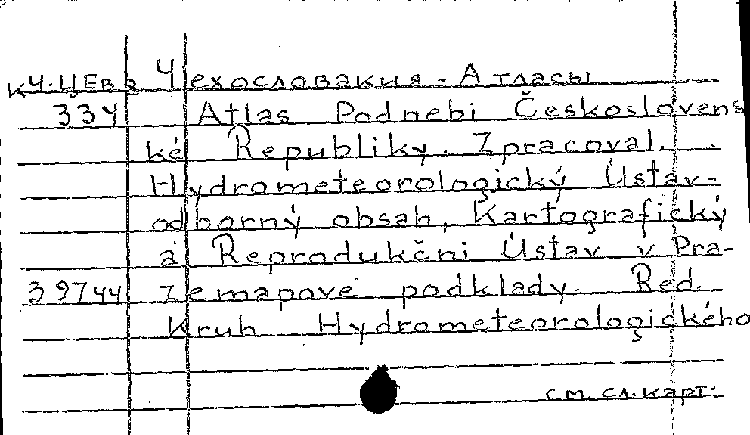 кЧ.ЦЕв 2 Чехословакия - Атласы
334 Atlas Podnebi Českosloven
ké Republiky. Zpracoval.
Hydrometeorologický Ústav-
odborný obsah, Kartografický
a Reprodukčni Ústav v Pra-
39744 ze mapové podklady. Red
Kruh Hydrometeorologického
см. сл. карт.